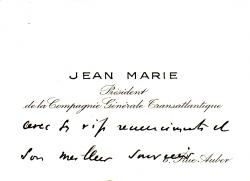 JEAN MARIE
Président
de la Compagnie Générale Transatlantique
avec ses vifs remerciements et
son meilleur souvenir
6, Rue Auber